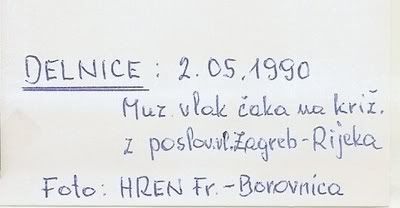 DELNICE : 2.05.1990
Muz. vlak čaka na križ.
z poslov.vl. Zagreb-Rijeka
Foto: HREN Fr.-Borovnica